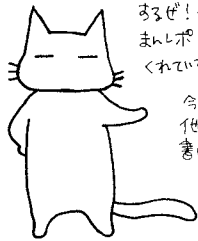 するぜ!
まんレポ
くれてい
今
他
書